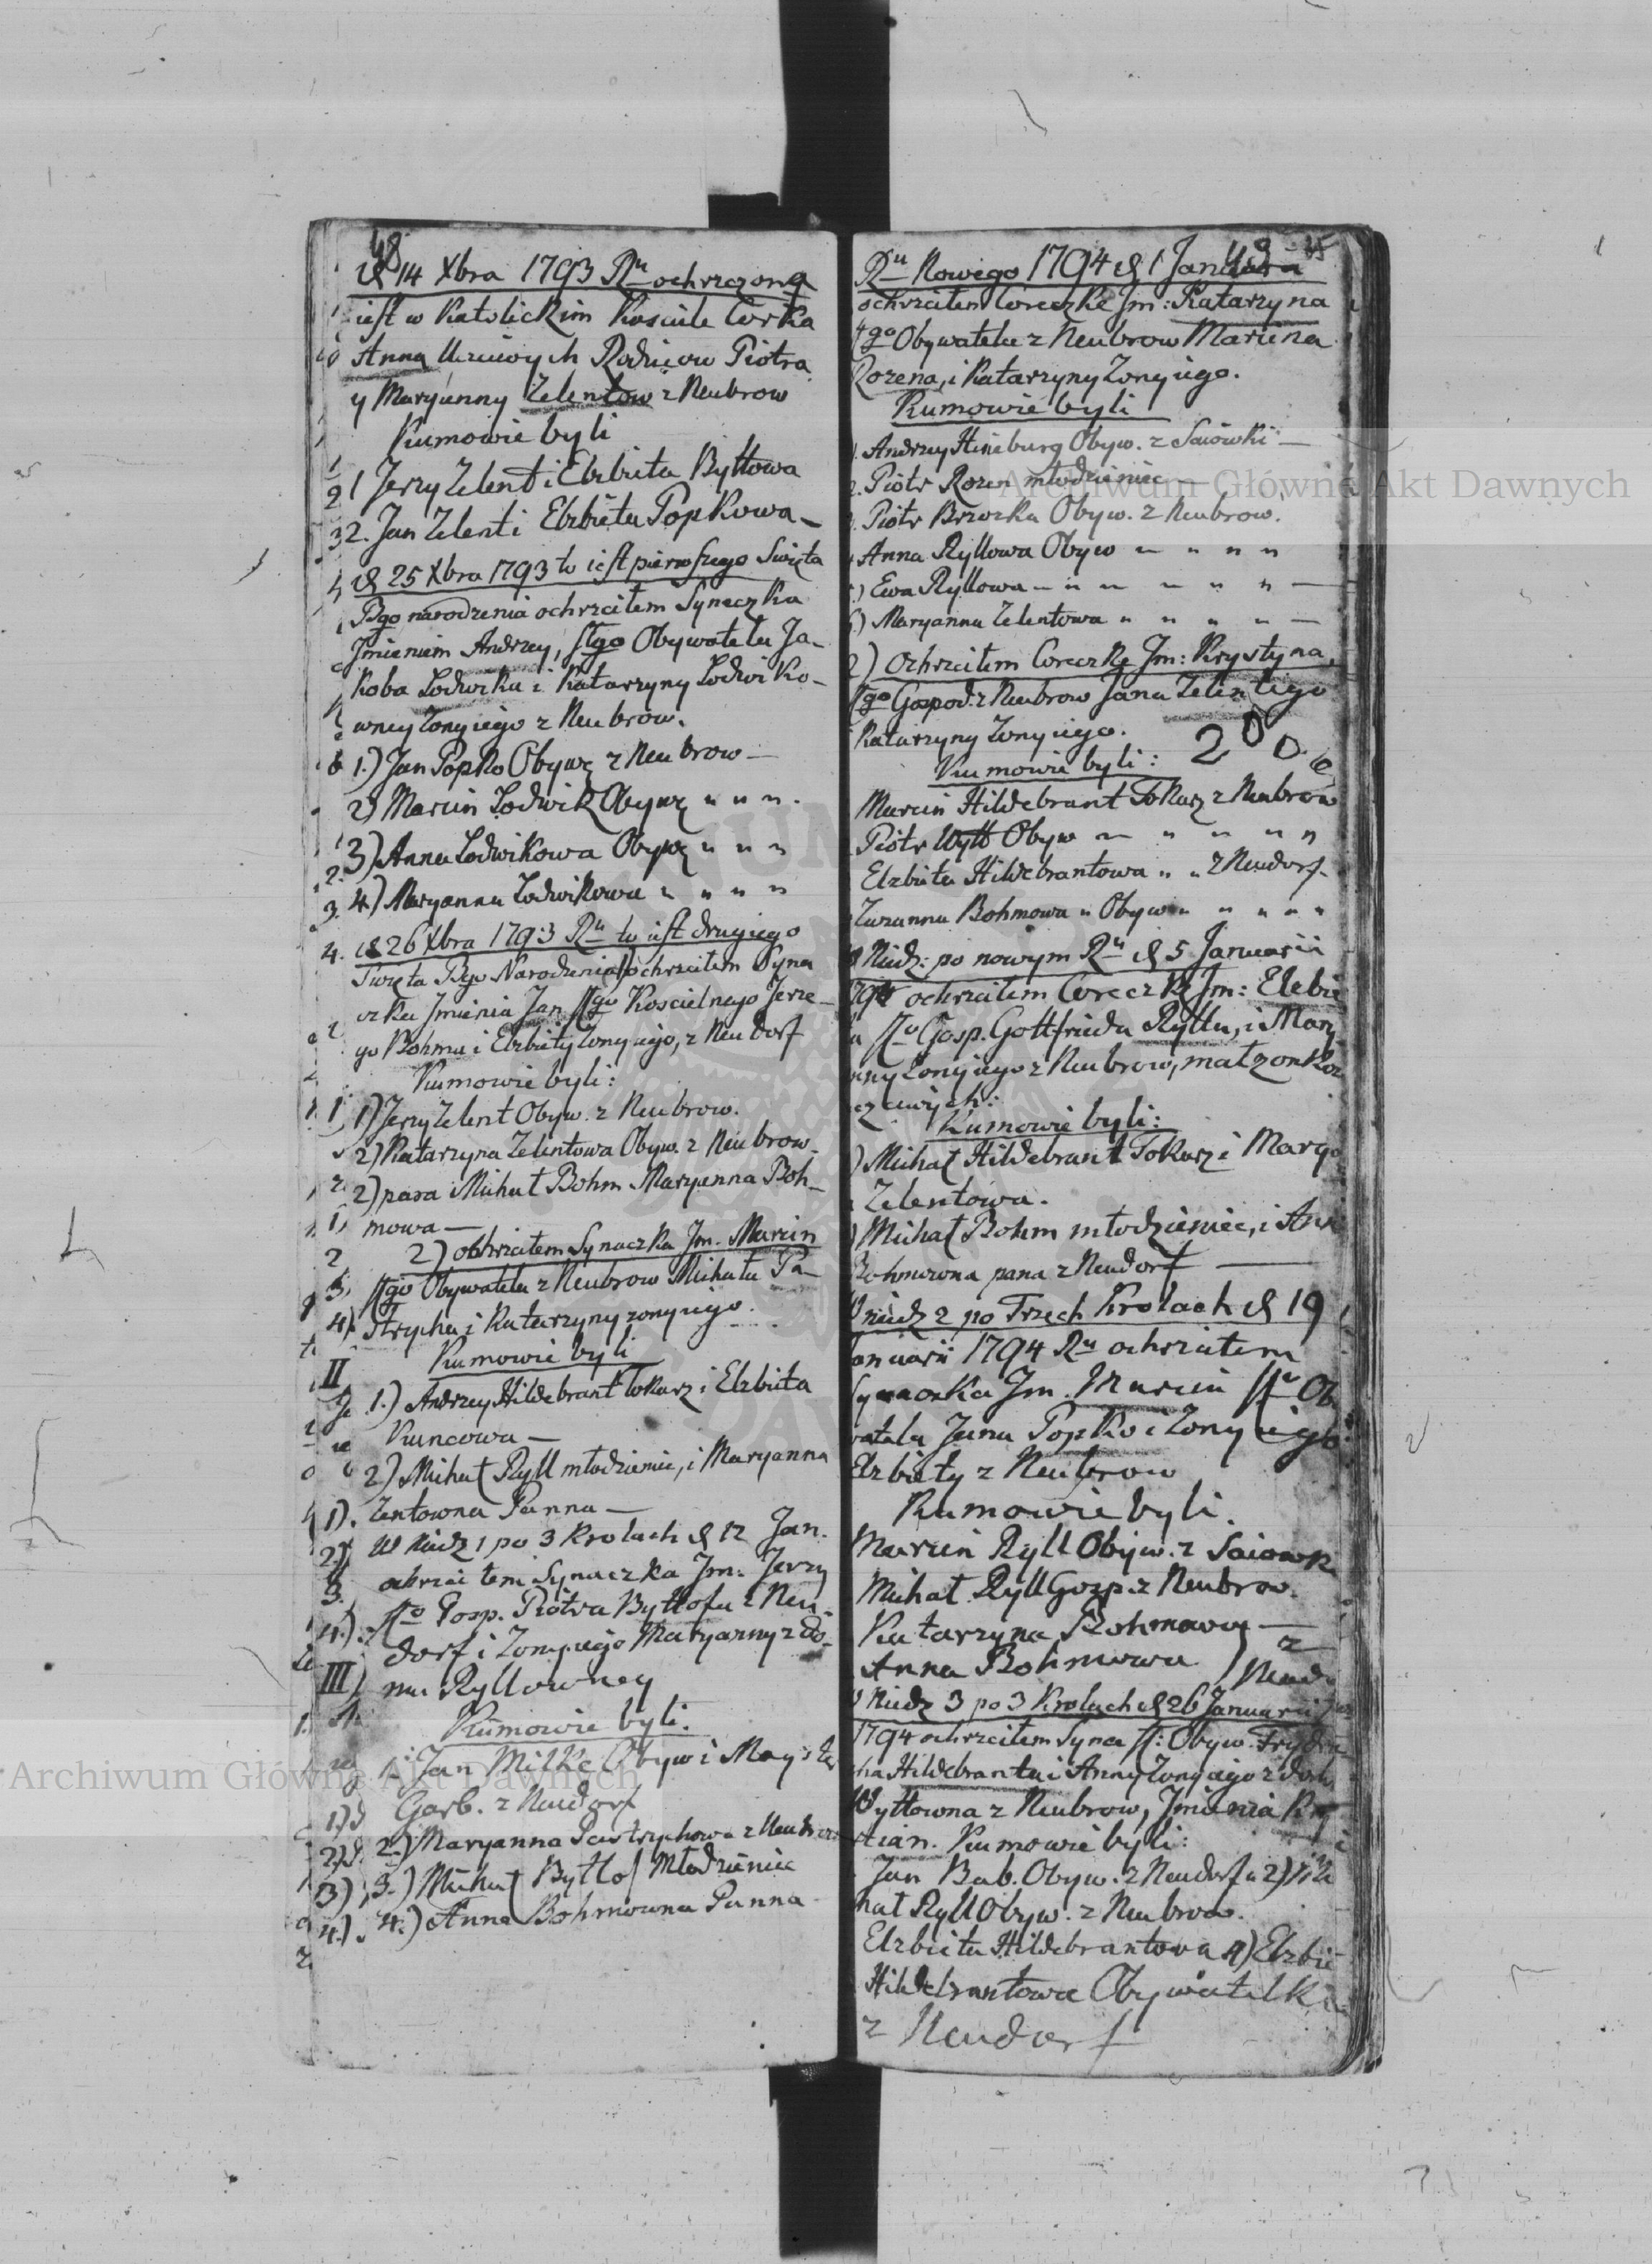 48
d 14 Xbra 1793 Ru ochrzczona
iest w Katolickim Kosciele Corka
Anna Uczciwych Rodzicow Piotra
y Maryanny Zelentow z Neubrow
Kumowie byli
1 Jerzy Zelent i Elzbieta Bytlowa
2. Jan Zelent i Elzbieta Popkowa
d 25 Xbra 1793 to iest pierwszego Swięta
Bgo narodzenia ochrzciłem Syneczka
Jmieniem Andrzey, Sgo Obywatela Ja-
koba Lodwika i Katarzyny Lodwiko-
wney Zony iego z Neubrow.
1.) Jan Popko Obyw z Neubrow —
2) Marcin Lodwik Obyw " " "
3) Anna Lodwikowa Obyw " " "
4) Maryanna Lodwikowa " " " "
d 26 Xbra 1793 Ru to iest drugiego
Swięta Bgo Narodzenia ochrzciłem Syna
czka Jmienia Jan Sgo Koscielnego Jerze-
go Bohma i Elzbiety Zony iego, z Neudorf
Kumowie byli:
1) Jerzy Zelent Obyw. z Neubrow.
2) Katarzyna Zelentowa Obyw. z Neubrow.
2) para Michał Bohm Maryanna Boh-
mowa —
2) ochrzciłem Synaczka Jm. Marcin
Sgo Obywatela z Neubrow Michała Pa-
strycha i Katarzyny zony iego.
Kumowie byli
1.) Andrzey Hildebrant Tokarz i Elzbieta
Kuncowa —
2) Michał Ryll młodzieniec, i Maryanna
Zentowna Panna —
W Niedz 1 po 3 Krolach d 12 Jan.
ochrzciłem Synaczka Jm: Jerzy
Gosp. Piotra Bytlofa z Neu-
dorf i Zony iego Maryanny z do-
mu Ryllowney
Kumowie byli.
1. Jan Milke Obyw i Mayster
Garb. z Neudorf
2.) Maryanna Pastrychowa z Neubrow
3.) Michał Bytlof Młodzieniec
4.) Anna Bohmowna Panna
49
Ru Nowego 1794 d 1 Januara
ochrzciłem Coreczkę Jm: Katarzyna
Sgo Obywatela z Neubrow Marcina
Rozena, i Katarzyny Zony iego.
Kumowie byli
Andrzey Hineburg Obyw. z Saiowki —
Piotr Rozen młodzieniec —
Piotr Brzozka Obyw. z Neubrow.
Anna Ryllowa Obyw " " " "
Ewa Ryllowa " " " " " —
Maryanna Zelentowa " " " " —
2) Ochrzciłem Coreczkę Jm: Krystyna,
Sgo Gospod. z Neubrow Jana Zelentego
Katarzyny Zony iego.
Kumowie byli:
Marcin Hildebrant Tokarz z Neubrow
Piotr Wytt Obyw " " " " "
Elzbieta Hildebrantowa " " z Neudorf
Zuzanna Bohmowa " Obyw " " " " "
Niedz: po nowym Ru d 5 Januarii
1794 ochrzciłem Coreczkę Jm: Elzbie
ta Gosp. Gottfrieda Rylla, i Mary
nny Zony iego z Neubrow, małzonkow
czciwych:
Kumowie byli:
Michał Hildebrant Tokarz i Marya
Zelentowa.
Michał Bohm młodzieniec, i Ann
Bohmowna pana z Neudorf —
niedz 2 po Trzech Krolach d 19
Januarii 1794 Ru ochrzciłem
Synaczka Jm. Marcin Ob
watela Jana Popko i Zony iego
Elzbiety z Neubrow
Kumowie byli.
Marcin Ryll Obyw. z Saiowk
Michał Ryll Gosp. z Neubrow.
Katarzyna Bohmowa — z
Anna Bohmowa Neud
Niedz 3 po 3 Krolach d 26 Januarii
1794 ochrzciłem Syna Obyw. Fryde
cha Hildebranta i Anny Zony iego z domu
Wyttowna z Neubrow, Jmienia Kry
stian. Kumowie byli:
Jan Bab. Obyw. z Neudorf 2) Mi
hał Ryll Obyw. z Neubrow.
Elzbieta Hildebrantowa 4) Elzbie
Hildebrantowa Obywatelk
z Neudorf
Archiwum Główne Akt Dawnych
Archiwum Główne Akt Dawnych